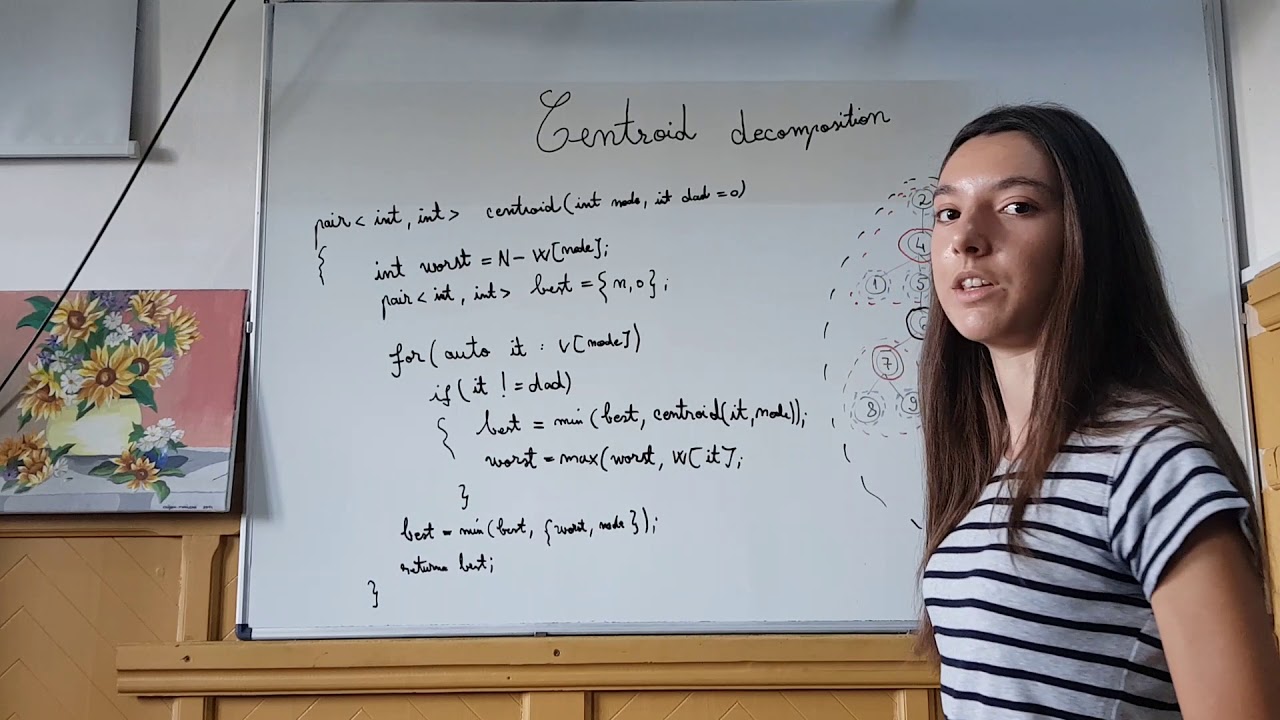 Centroid decomposition
pair< int, int> centroid(int node, int dad=0)
{
int worst = N- W[node];
pair< int, int> best = {n,0};
for( auto it : V[node])
if( it != dad)
{ best = min(best, centroid(it,node));
worst = max(worst, W[it];
}
best = min(best, {worst, node});
return best;
}
2
4
1 5
7
8 9